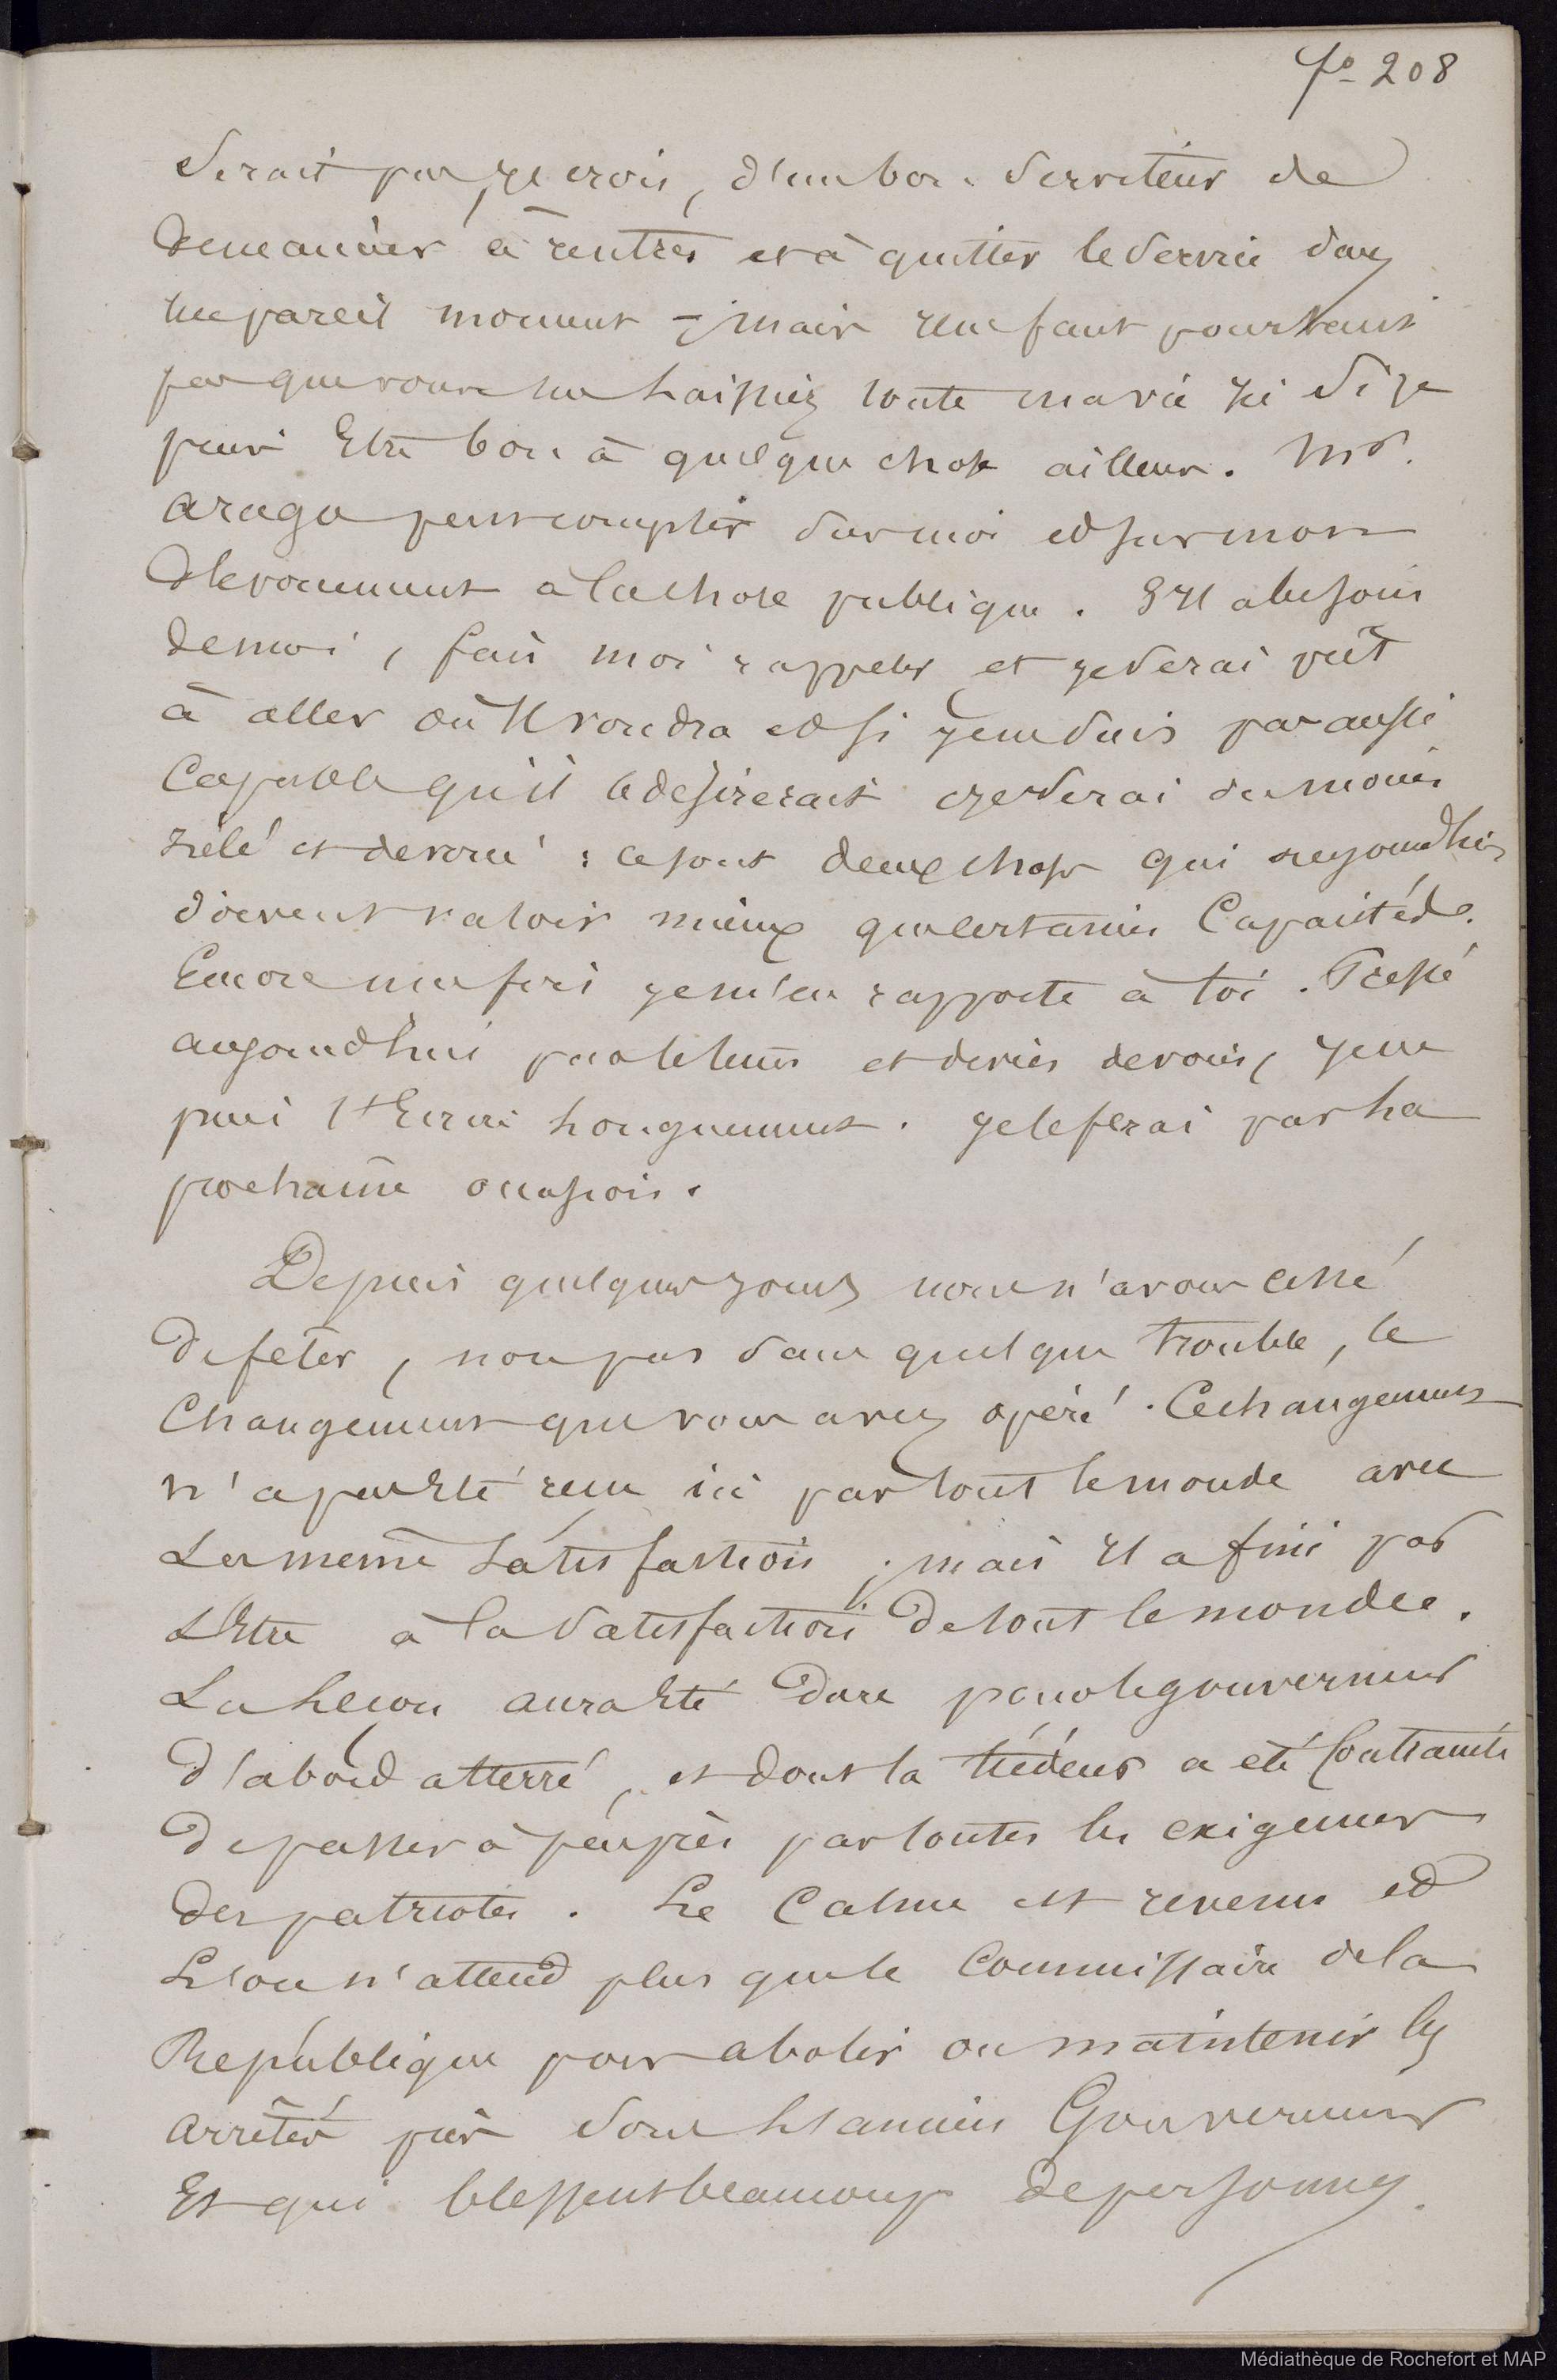 fo 208
Serait pas, je crois, d'un bon Serviteur de
demander à rentrer et à quitter le Service dans
un pareil moment; mais il ne faut pourtant
pas que vous me laissiez toute ma vie ici Si je
puis Etre bon à quelque chose ailleurs. Mr.
arago peut compter Sur moi et sur mon
devouement a la chose publique. S'il a besoin
de moi, fais moi rappeler et je Serai prêt
à aller où Il voudra et si je ne Suis pas aussi
Capable qu'il le desirerait je Serai du moins
zélé et devoué: ce sont deux choses qui aujourdhui
doivent valoir mieux que certaines Capacités.
Encore une fois je m'en rapporte à toi. Pressé
aujourdhui par le tems et divers devoirs, je ne
puis t'Ecrire longuement. je le ferai par la
prochaine occasion.
Depuis quelques jours nous n'avons cessé
de fêter, non pas Sans quelque trouble, le
Changement que vous avez opéré. Ce changement
n'a pas Eté reçu ici par tout le monde avec
La même Satisfaction; mais Il a fini par
L'Etre à la Satisfaction de tout le monde.
La Leçon aura Eté dure pour le gouverneur
d'abord atterré, et dont la tiédeur a eté contrainte
de passer à peu près par toutes les exigences
des patriotes. Le Calme est revenu et
L'on n'attend plus que le Commissaire de la
République pour abolir ou maintenir les
arrêtés pris Sous L'ancien Gouverneur
Et qui blessent beaucoup de personnes.
Médiathèque de Rochefort et MAP